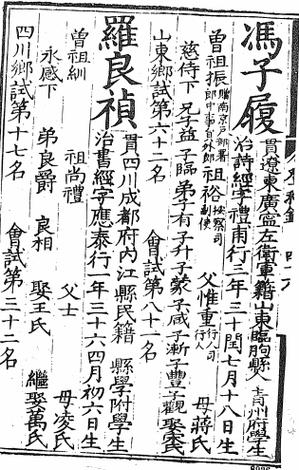 馮子履
貫遼東廣寧左衛軍籍山東臨朐縣人 青州府學生
治詩經字禮甫行三年三十閏七月十八日生
曾祖振 贈南京戶部署郎中事員外郎 祖裕 按察司副使 父惟重 行人司行人 母蔣氏
慈侍下 兄子益子臨 弟子有子升子蒙子咸子漸子豐子觀 娶氏
山東鄉試第六十二名 會試第八十一名
羅良禎
貫四川成都府內江縣民籍 縣學附學生
治書經字應泰行一年三十六四月初六日生
曾祖紃 祖尚禮 父士 母凌氏
永感下 弟良爵 良相 娶王氏 繼娶萬氏
四川鄉試第十七名 會試第三十二名